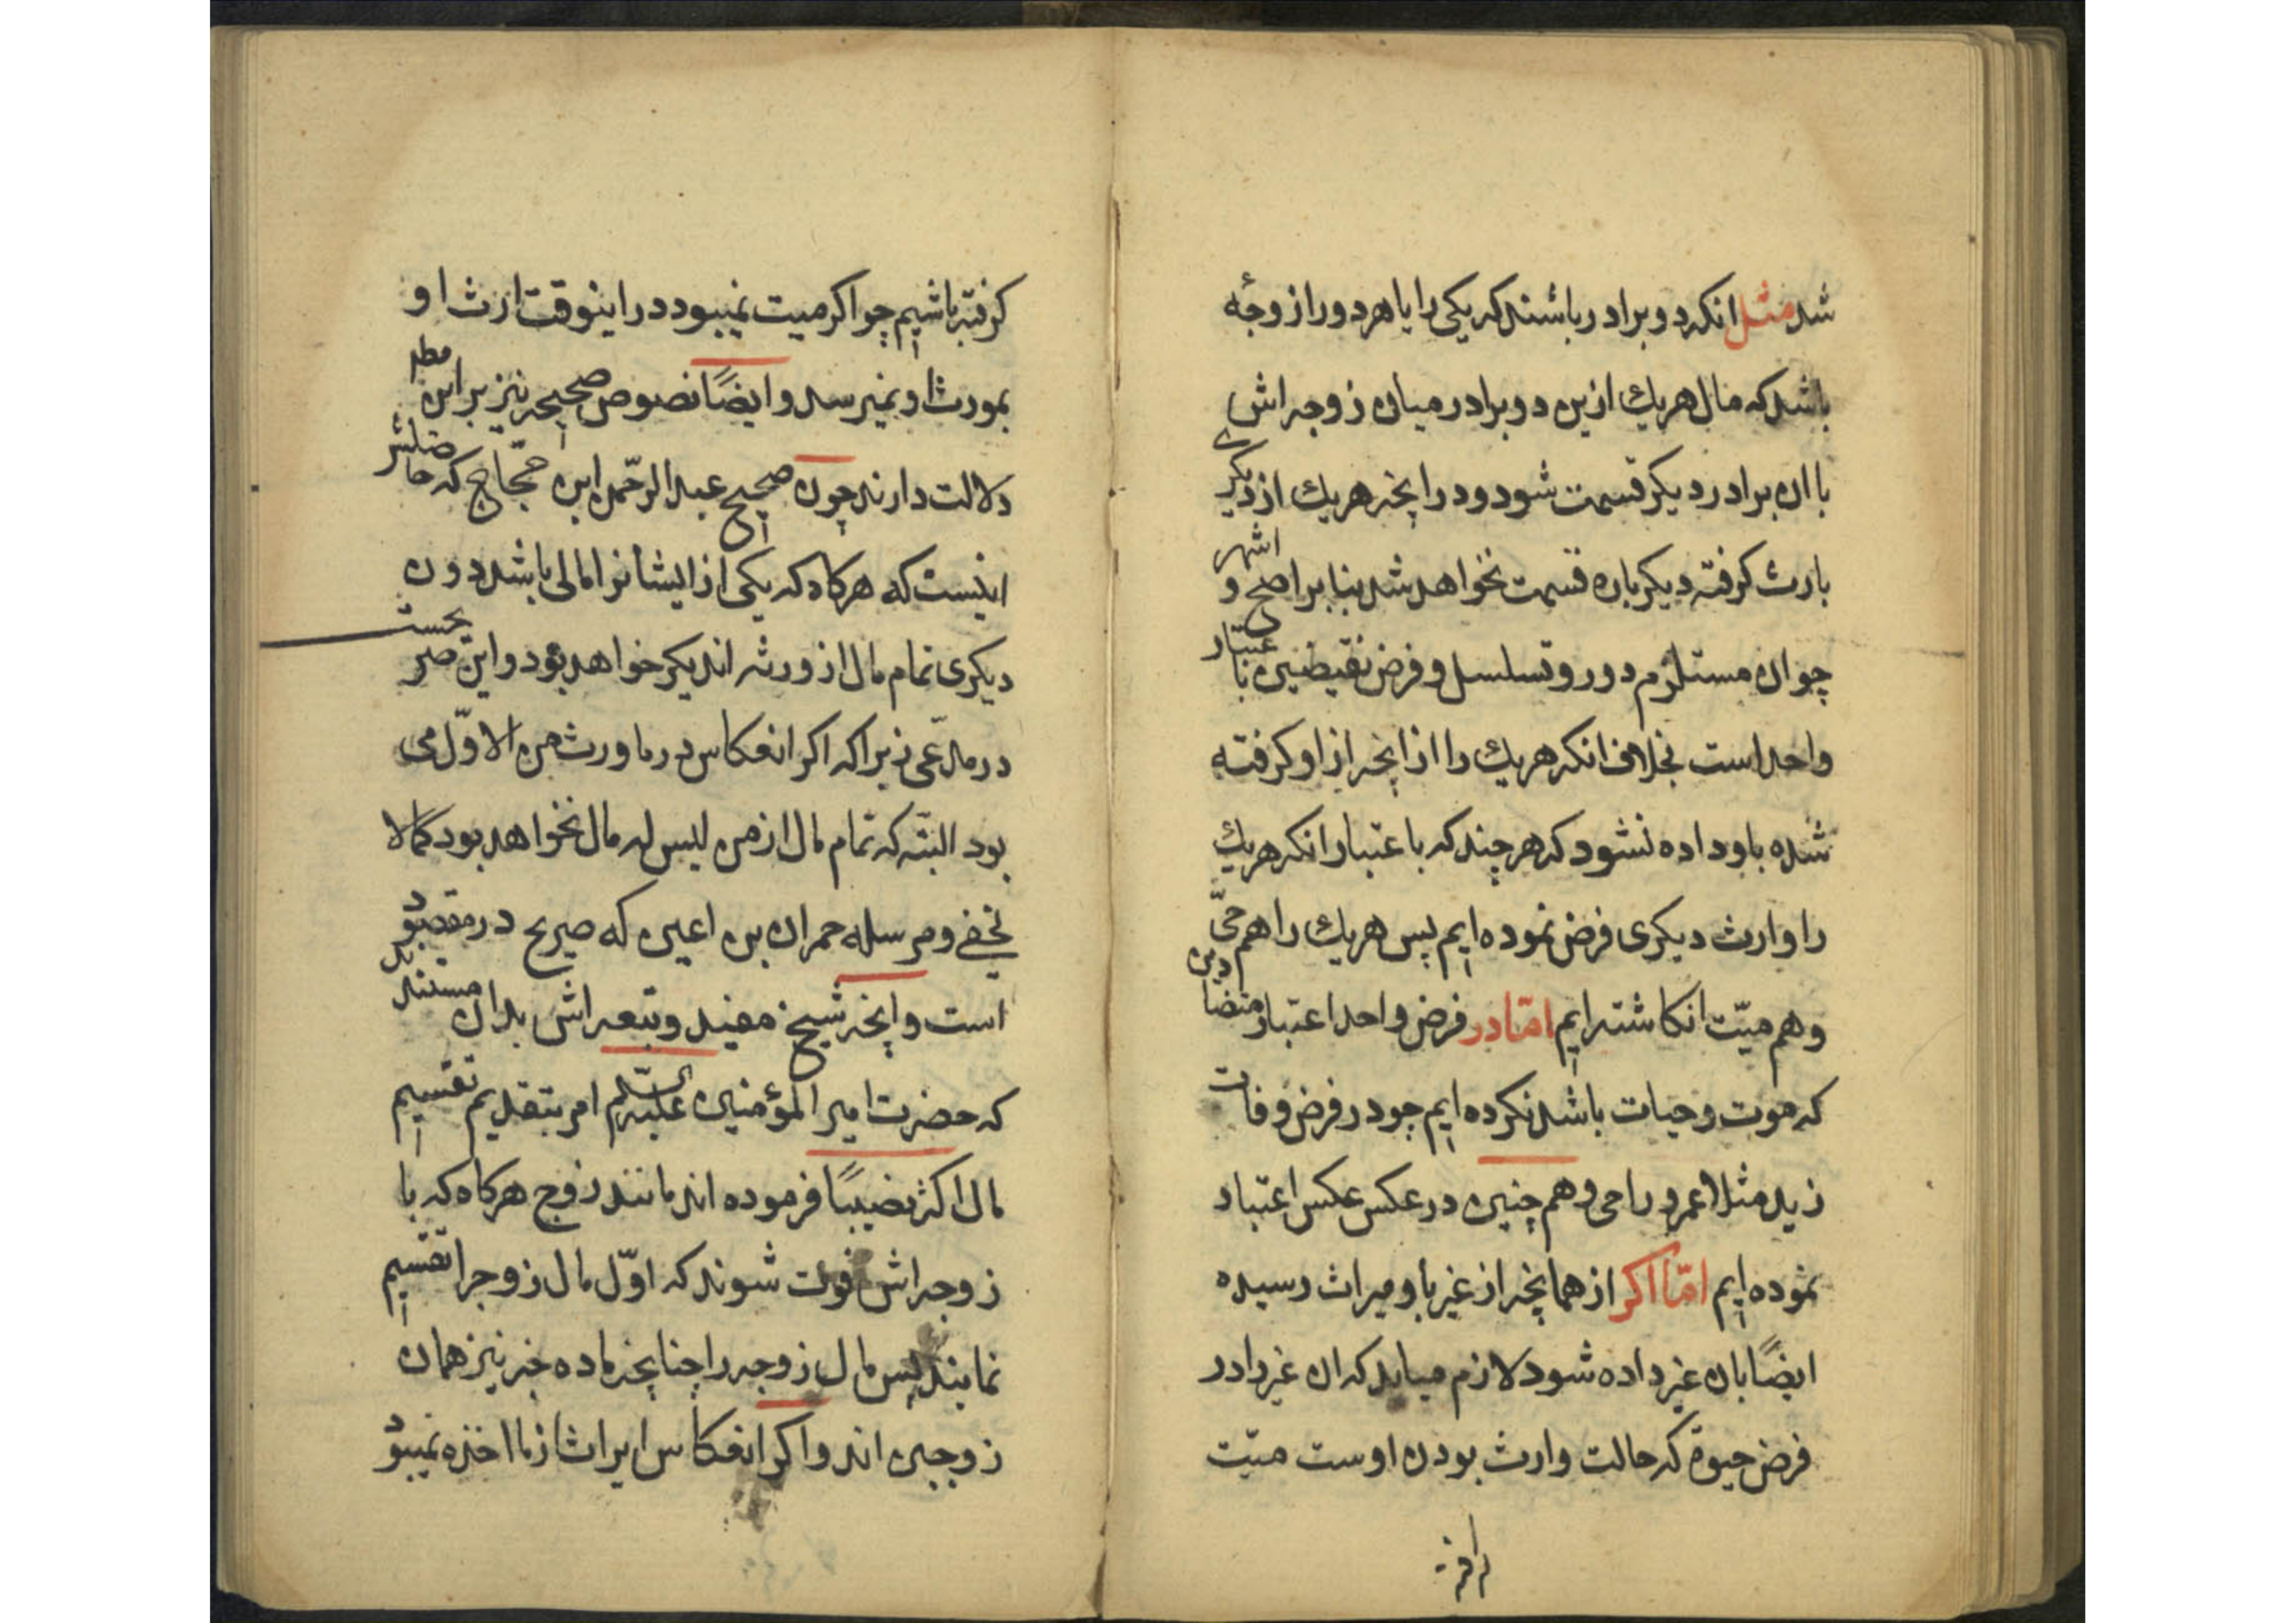 شد مثل انکه دو برادر باشند که یکی را یا هر دو را زوجهٔ
باشد که مال هریك ازین دو برادر میان زوجه اش
با ان برادر دیکر قسمت شود و در اینچه هریك از دیکری
بارث کرفته دیکر باره قسمت نخواهد شد بنا بر اصح و اشهر
چو ان مستلزم دور و تسلسل و فرض نقیضین با عتبار
واحد است بخلاف انکه هریك را از اینچه از او کرفته
شده باو داده نشود که هر چند که باعتبار انکه هریك
را وارث دیکری فرض نموده ایم پس هریك را هم حیّ
و هم میّت انکاشته ایم امّا در فرض واحد اعتبار متضادین
که موت و حیات باشد نکرده ایم چو در فرض وفات
زید مثلا عمرو را حی و هم چنین در عکس عکس اعتبار
نموده ایم امّا اکر از همانچه از غیر باو میراث رسیده
ایضًا بان غیر داده شود لازم میاید که ان غیر را در
فرض حیوة که حالت وارث بودن اوست میّت
کرفته باشیم چو اکر میت نمیبود در اینوقت ارث او
بمورث او نمیرسد و ایضًا نصوص صحیحه نیز بر این مطلب
دلالت دارند چون صحیح عبد الرّحمن ابن حجّاج که حاصلش
اینست که هرکاه که یکی از ایشانرا مالی باشد دون
دیکری تمام مال از ورثه ان دیکر خواهد بود و این صریحست
در مدّعی زیرا که اکر انعکاس در ما ورث من الاوّل می
بود البتّه که تمام مال از من لیس له مال نخواهد بود کمالا
یخفی و مرسله حمران بن اعین که صریح در مقصود
است و اینچه شیخ مفید و تبعه اش بدان مستندند
که حضرت امیر المؤمنین علیه السّلم امر بتقدیم تقسیم
مال اکثر نصیبًا فرموده اند مانند زوج هرکاه که با
زوجه اش فوت شوند که اوّل مال زوج را تقسیم
نمایند پس مال زوجه را چنانچه ماده خبر نیز همان
زوجین اند و اکر انعکاس ایراث از ما اخذه نمیبود